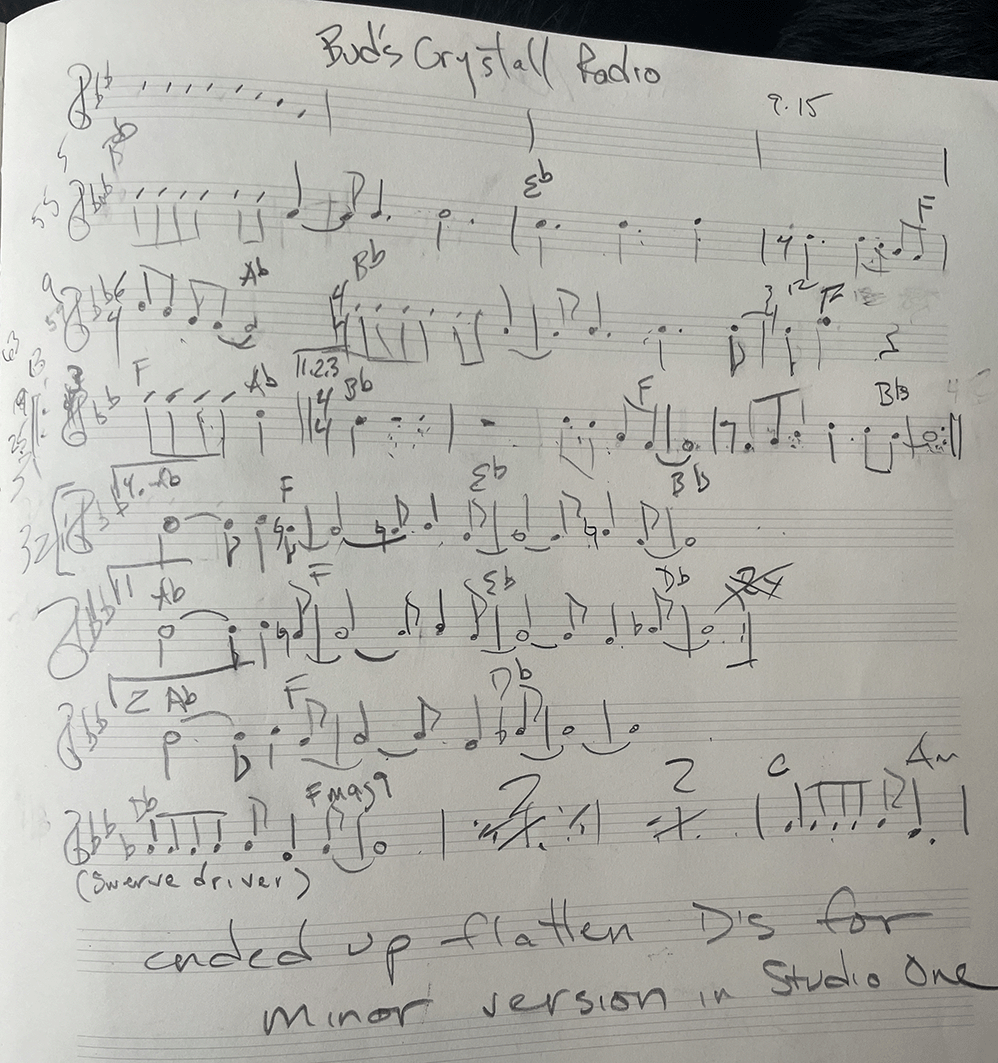 Bud's Crystall Radio
9.15
Eb
F
Ab Bb
F Ab 1.2.3 Bb F Bb
Bb
4. Ab F Eb
32
11 Ab F Eb Db
2 Ab F Db
Db Fmaj9 2 2 C Am
(Swerve driver)
ended up flatten D's for
minor version in Studio One